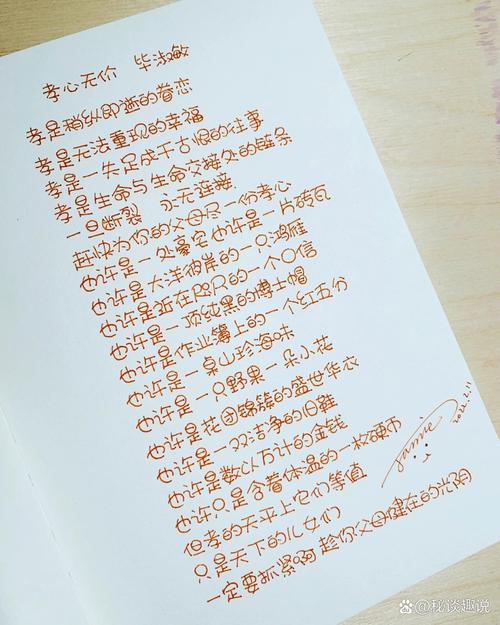 孝心无价 毕淑敏
孝是稍纵即逝的眷恋
孝是无法重现的幸福
孝是一失足成千古恨的往事
孝是生命与生命交接处的链条
一旦断裂 永无连接
赶快为你的父母尽一份孝心
也许是一处豪宅也许是一片砖瓦
也许是大洋彼岸的一只鸿雁
也许是近在咫尺的一个口信
也许是一顶纯黑的博士帽
也许是作业簿上的一个红五分
也许是一桌山珍海味
也许是一只野果一朵小花
也许是花团锦簇的盛世华衣
也许是一双洁净的旧鞋
也许是数以万计的金钱
也许只是含着体温的一枚硬币
但孝的天平上它们等值
只是天下的儿女们
一定要抓紧啊 趁你父母健在的光阴
2022.2.11
@秘谈趣说